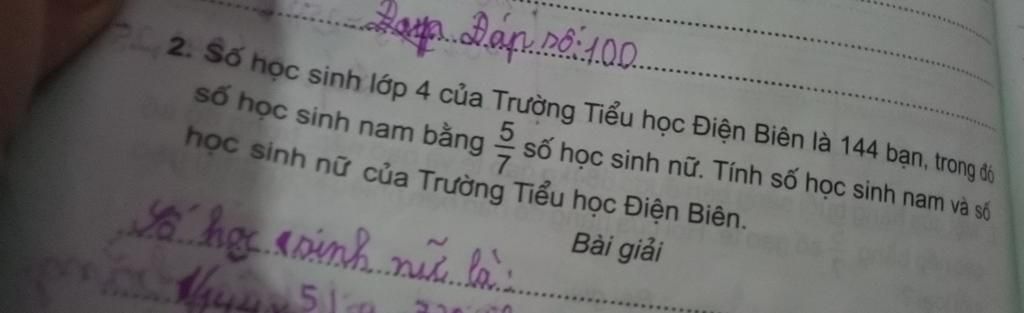 Đáp số: 100
2. Số học sinh lớp 4 của Trường Tiểu học Điện Biên là 144 bạn, trong đó
số học sinh nam bằng 5/7 số học sinh nữ. Tính số học sinh nam và số
học sinh nữ của Trường Tiểu học Điện Biên.
Bài giải
Số học sinh nữ là: